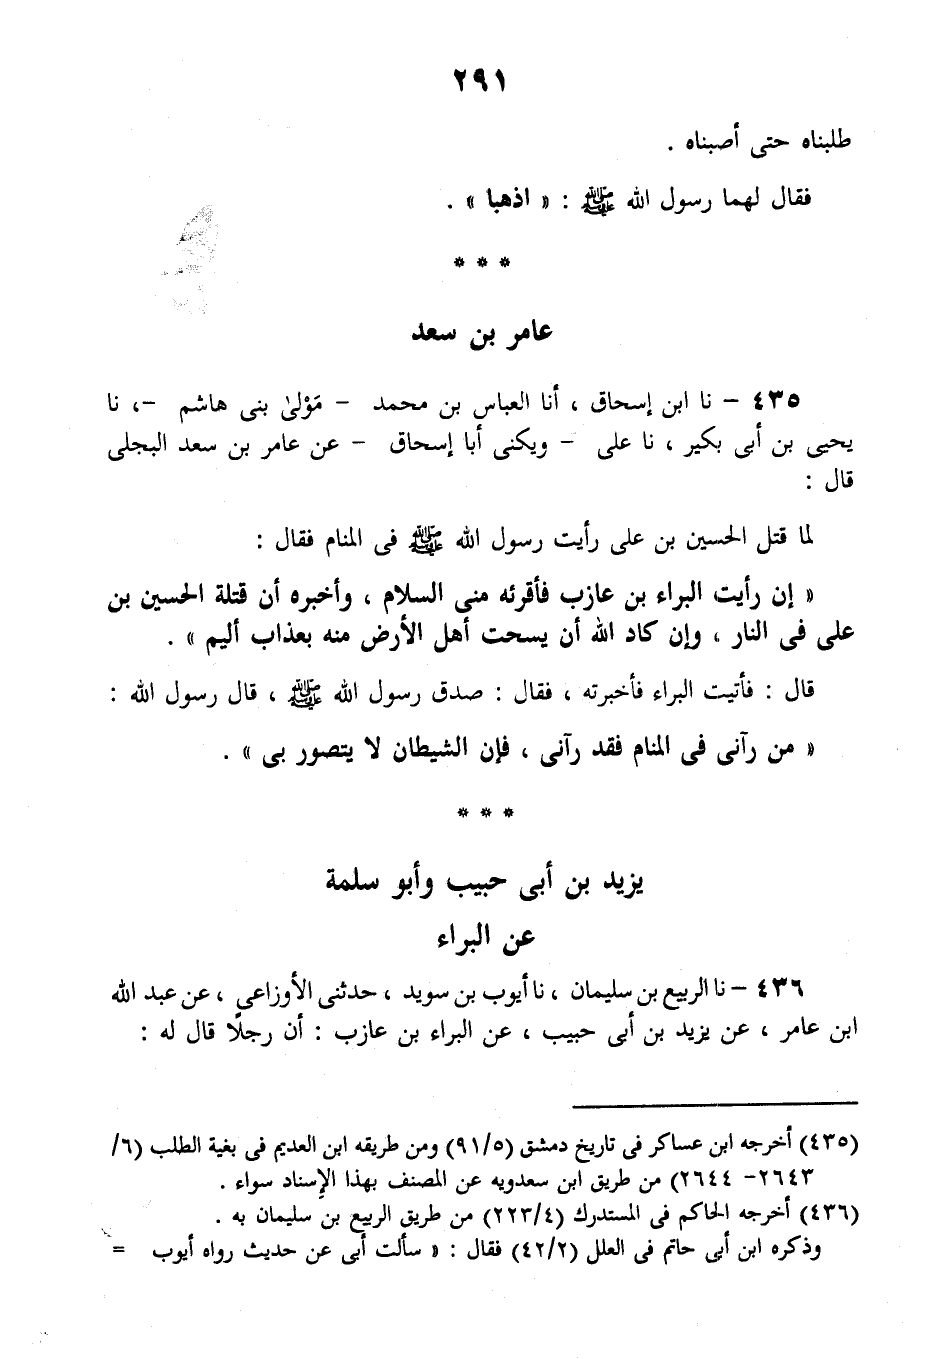 ٢٩١
طلبناه حتى أصبناه .
فقال لهما رسول الله ﷺ : « اذهبا » .
* * *
عامر بن سعد
٤٣٥ – نا ابن إسحاق ، أنا العباس بن محمد – مَوْلىٰ بنى هاشم –، نا
يحيى بن أبى بكير ، نا على – ويكنى أبا إسحاق – عن عامر بن سعد البجلى
قال :
لما قتل الحسين بن على رأيت رسول الله ﷺ فى المنام فقال :
« إن رأيت البراء بن عازب فأقرئه منى السلام ، وأخبره أن قتلة الحسين بن
على فى النار ، وإن كاد الله أن يسحت أهل الأرض منه بعذاب أليم » .
قال : فأتيت البراء فأخبرته ، فقال : صدق رسول الله ﷺ ، قال رسول الله :
« من رآنى فى المنام فقد رآنى ، فإن الشيطان لا يتصور بى » .
* * *
يزيد بن أبى حبيب وأبو سلمة
عن البراء
٤٣٦ – نا الربيع بن سليمان ، نا أيوب بن سويد ، حدثنى الأوزاعى ، عن عبد الله
ابن عامر ، عن يزيد بن أبى حبيب ، عن البراء بن عازب : أن رجلًا قال له :
(٤٣٥) أخرجه ابن عساكر فى تاريخ دمشق (٩١/٥) ومن طريقه ابن العديم فى بغية الطلب (٦/
٢٦٤٣– ٢٦٤٤) من طريق ابن سعدويه عن المصنف بهذا الإسناد سواء .
(٤٣٦) أخرجه الحاكم فى المستدرك (٢٢٣/٤) من طريق الربيع بن سليمان به .
وذكره ابن أبى حاتم فى العلل (٤٢/٢) فقال : « سألت أبى عن حديث رواه أيوب =